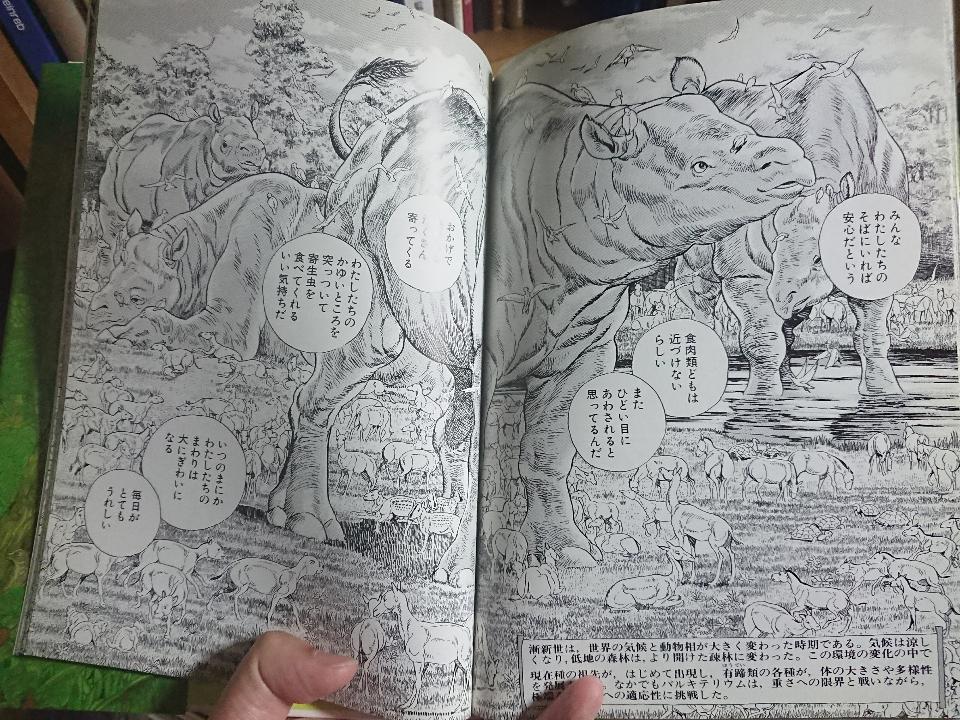 みんな
わたしたちの
そばにいれば
安心だという
食肉類どもは
近づけない
らしい
また
ひどい目に
あわされると
思ってるんだ
おかげで
寄ってくる
わたしたちの
かゆいところを
突っついて
寄生虫を
食べてくれる
いい気持ちだ
いつのまにか
わたしたちの
まわりは
大にぎわいに
なる
毎日が
とても
うれしい
漸新世は、世界の気候と動物相が大きく変わった時期である。気候は涼し
くなり、低地の森林は、より開けた疎林に変わった。この環境の変化の中で
現在種の祖先が、はじめて出現し、有蹄類の各種が、体の大きさや多様性
を発展
なかでもバルキテリウムは、重さへの限界と戦いながら、
への適応性に挑戦した。